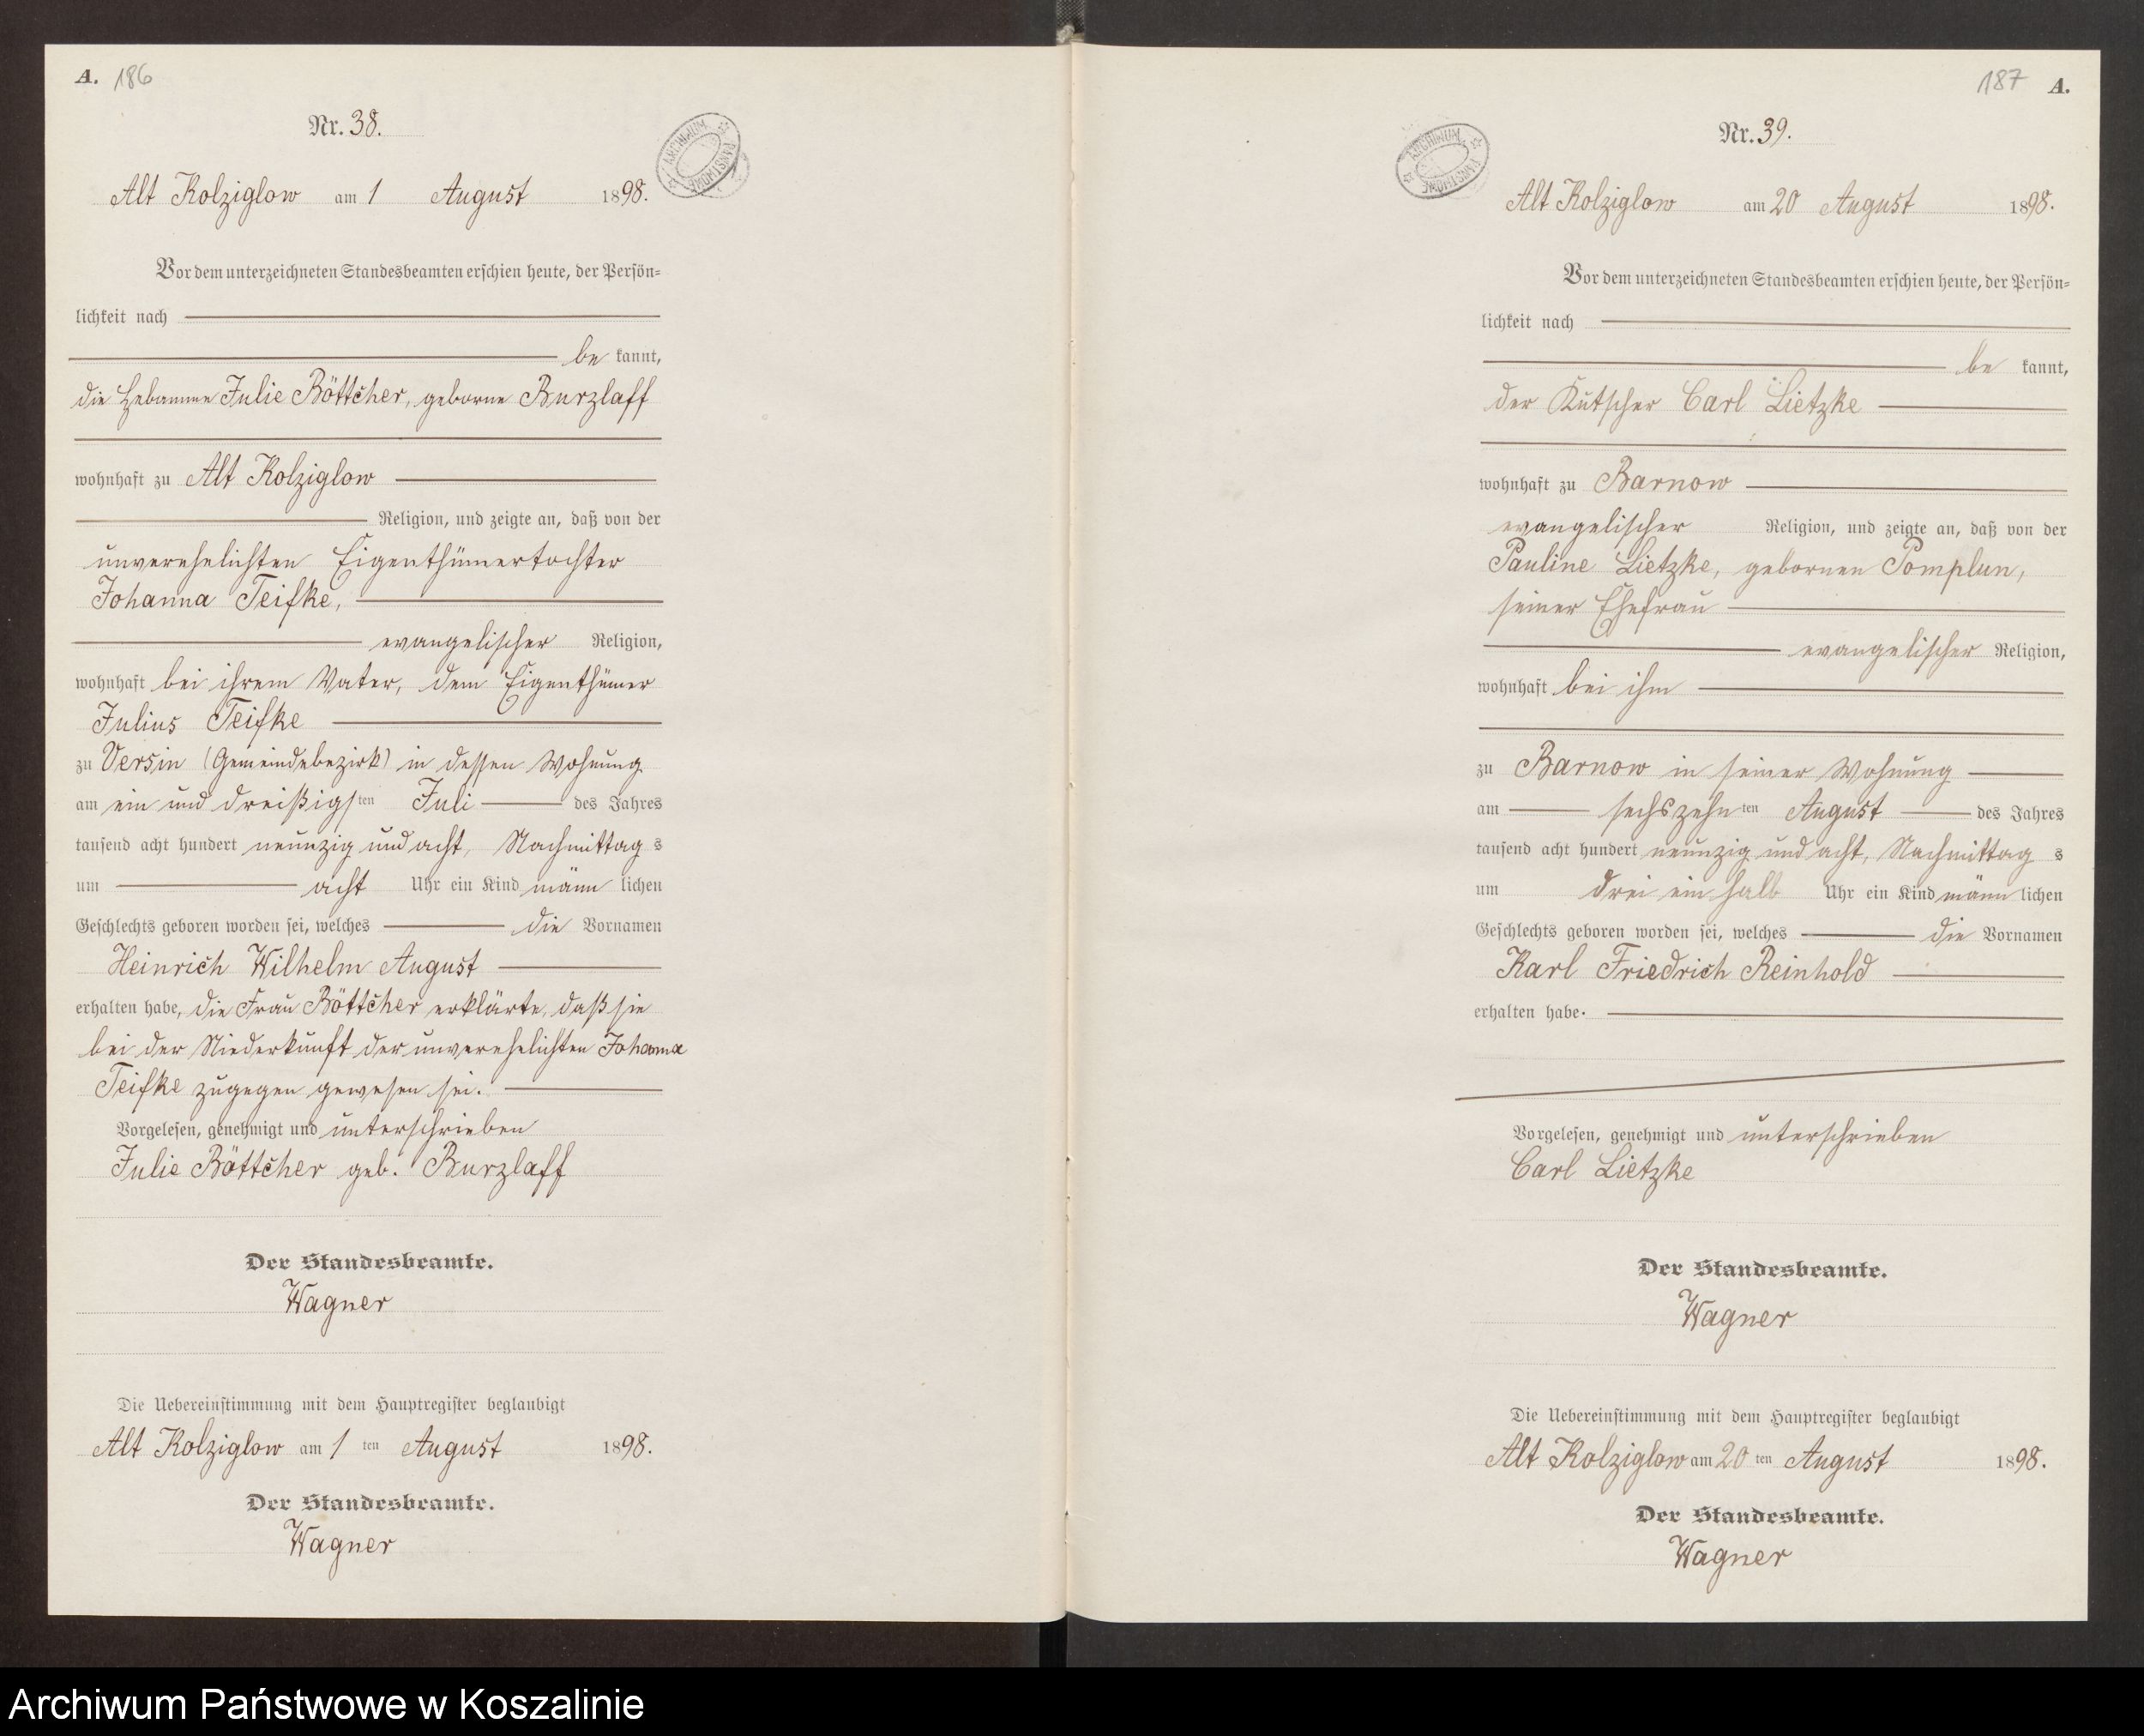 A. 186
Nr. 38.
ARCHIWUM PAŃSTWOWE
Alt Kolziglow am 1 August 1898.
Vor dem unterzeichneten Standesbeamten erschien heute, der Persön=
lichkeit nach
be kannt,
die Hebamme Julie Böttcher, geborne Burzlaff
wohnhaft zu Alt Kolziglow
Religion, und zeigte an, daß von der
unverehelichten Eigenthümertochter
Johanna Teifke,
evangelischer Religion,
wohnhaft bei ihrem Vater, dem Eigenthümer
Julius Teifke
zu Versin (Gemeindebezirk) in dessen Wohnung
am ein und dreißigsten Juli des Jahres
tausend acht hundert neunzig und acht, Nachmittag s
um acht Uhr ein Kind männ lichen
Geschlechts geboren worden sei, welches die Vornamen
Heinrich Wilhelm August
erhalten habe, die Frau Böttcher erklärte, daß sie
bei der Niederkunft der unverehelichten Johanna
Teifke zugegen gewesen sei.
Vorgelesen, genehmigt und unterschrieben
Julie Böttcher geb. Burzlaff
Der Standesbeamte.
Wagner
Die Uebereinstimmung mit dem Hauptregister beglaubigt
Alt Kolziglow am 1 ten August 1898.
Der Standesbeamte.
Wagner
187 A.
Nr. 39.
ARCHIWUM PAŃSTWOWE
Alt Kolziglow am 20 August 1898.
Vor dem unterzeichneten Standesbeamten erschien heute, der Persön=
lichkeit nach
be kannt,
der Kutscher Carl Lietzke
wohnhaft zu Barnow
evangelischer Religion, und zeigte an, daß von der
Pauline Lietzke, gebornen Pomplun,
seiner Ehefrau
evangelischer Religion,
wohnhaft bei ihm
zu Barnow in seiner Wohnung
am sechszehn ten August des Jahres
tausend acht hundert neunzig und acht, Nachmittag s
um drei ein halb Uhr ein Kind männ lichen
Geschlechts geboren worden sei, welches die Vornamen
Karl Friedrich Reinhold
erhalten habe.
Vorgelesen, genehmigt und unterschrieben
Carl Lietzke
Der Standesbeamte.
Wagner
Die Uebereinstimmung mit dem Hauptregister beglaubigt
Alt Kolziglow am 20 ten August 1898.
Der Standesbeamte.
Wagner
Archiwum Państwowe w Koszalinie